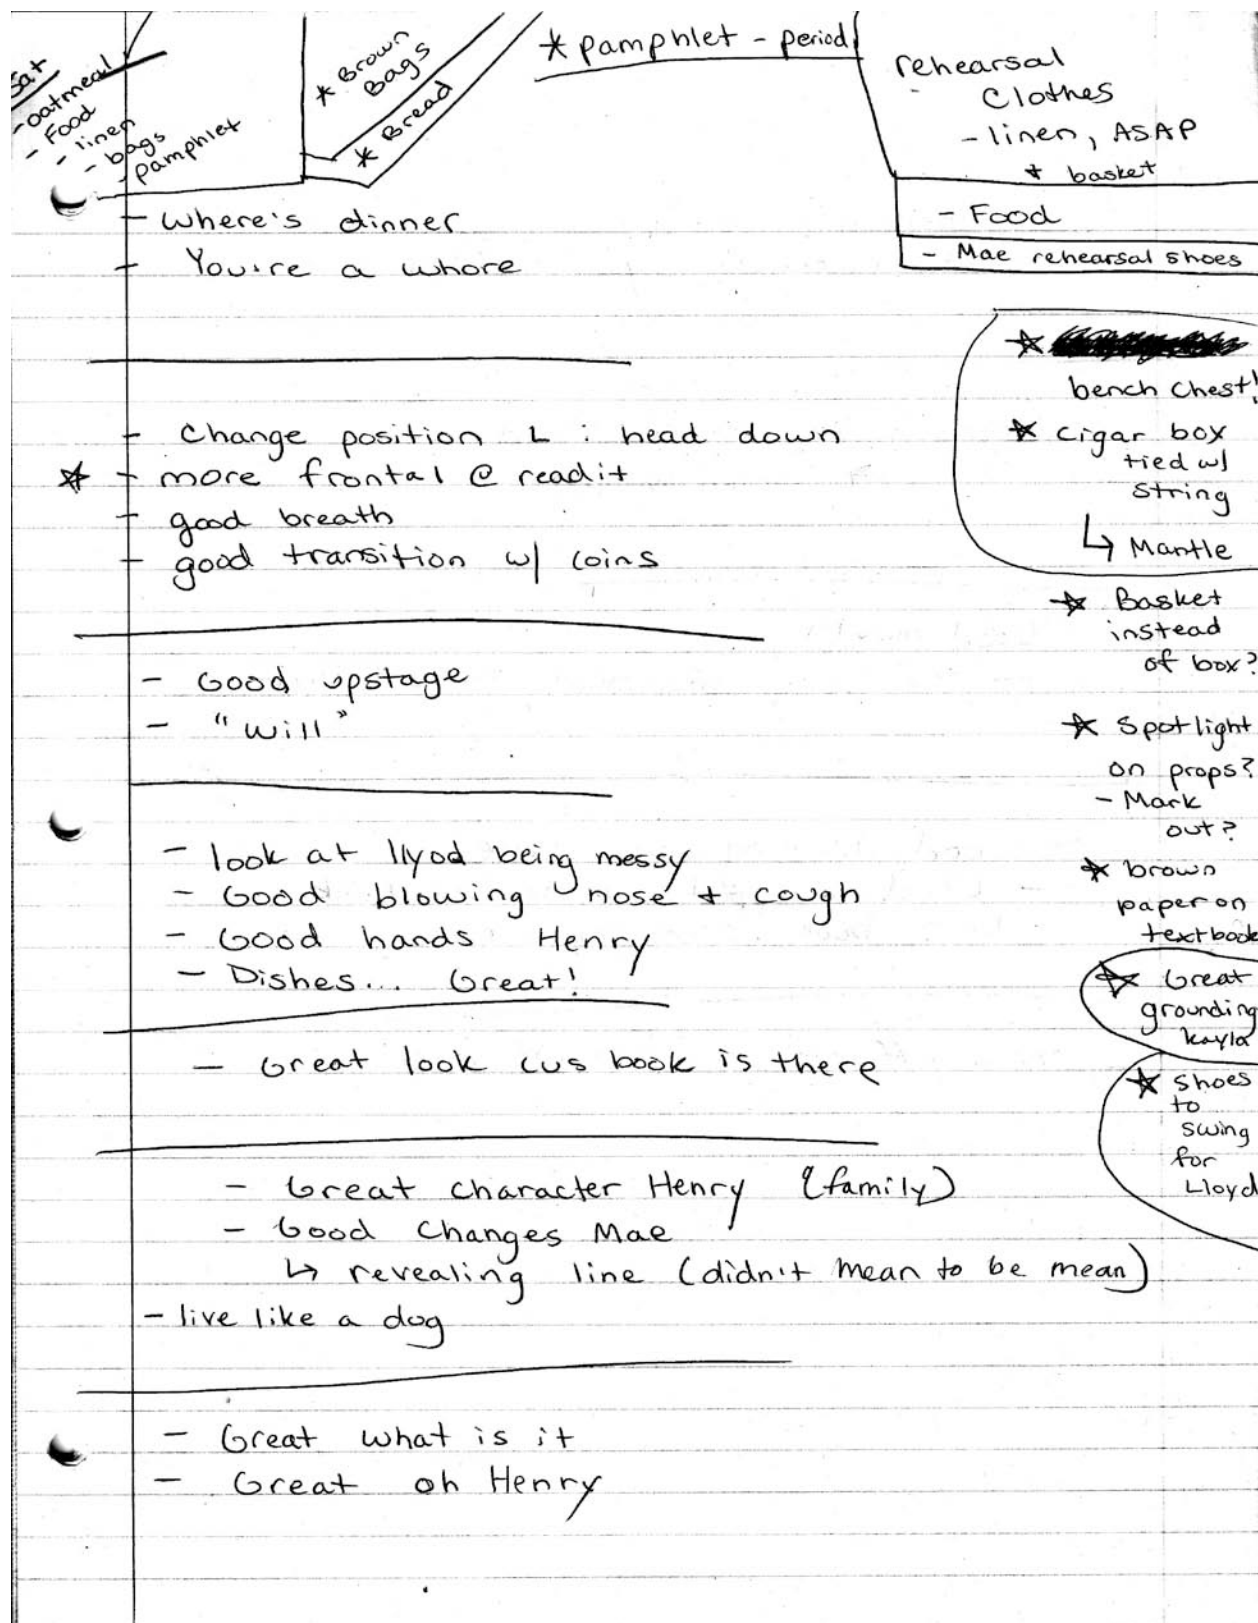 Sat
- oatmeal
- Food
- linen
- bags
- Pamphlet
* Brown
Bags
* Bread
* pamphlet - period
rehearsal
Clothes
- linen, ASAP
+ basket
- Food
- Mae rehearsal shoes
- Where's dinner
- You're a whore
- Change position L : head down
* - more frontal @ readit
- good breath
- good transition w/ coins
- Good upstage
- "Will"
- look at llyod being messy
- Good blowing nose + cough
- Good hands Henry
- Dishes... Great!
- Great look cus book is there
- Great character Henry (family)
- Good Changes Mae
↳ revealing line (didn't mean to be mean)
- live like a dog
- Great what is it
- Great oh Henry
*
bench chest!
* cigar box
tied w/
string
↳ Mantle
* Basket
instead
of box?
* Spotlight
on props?
- Mark
out?
* brown
paper on
textbook
* Great
grounding
kayla
* shoes
to
swing
for
Lloyd